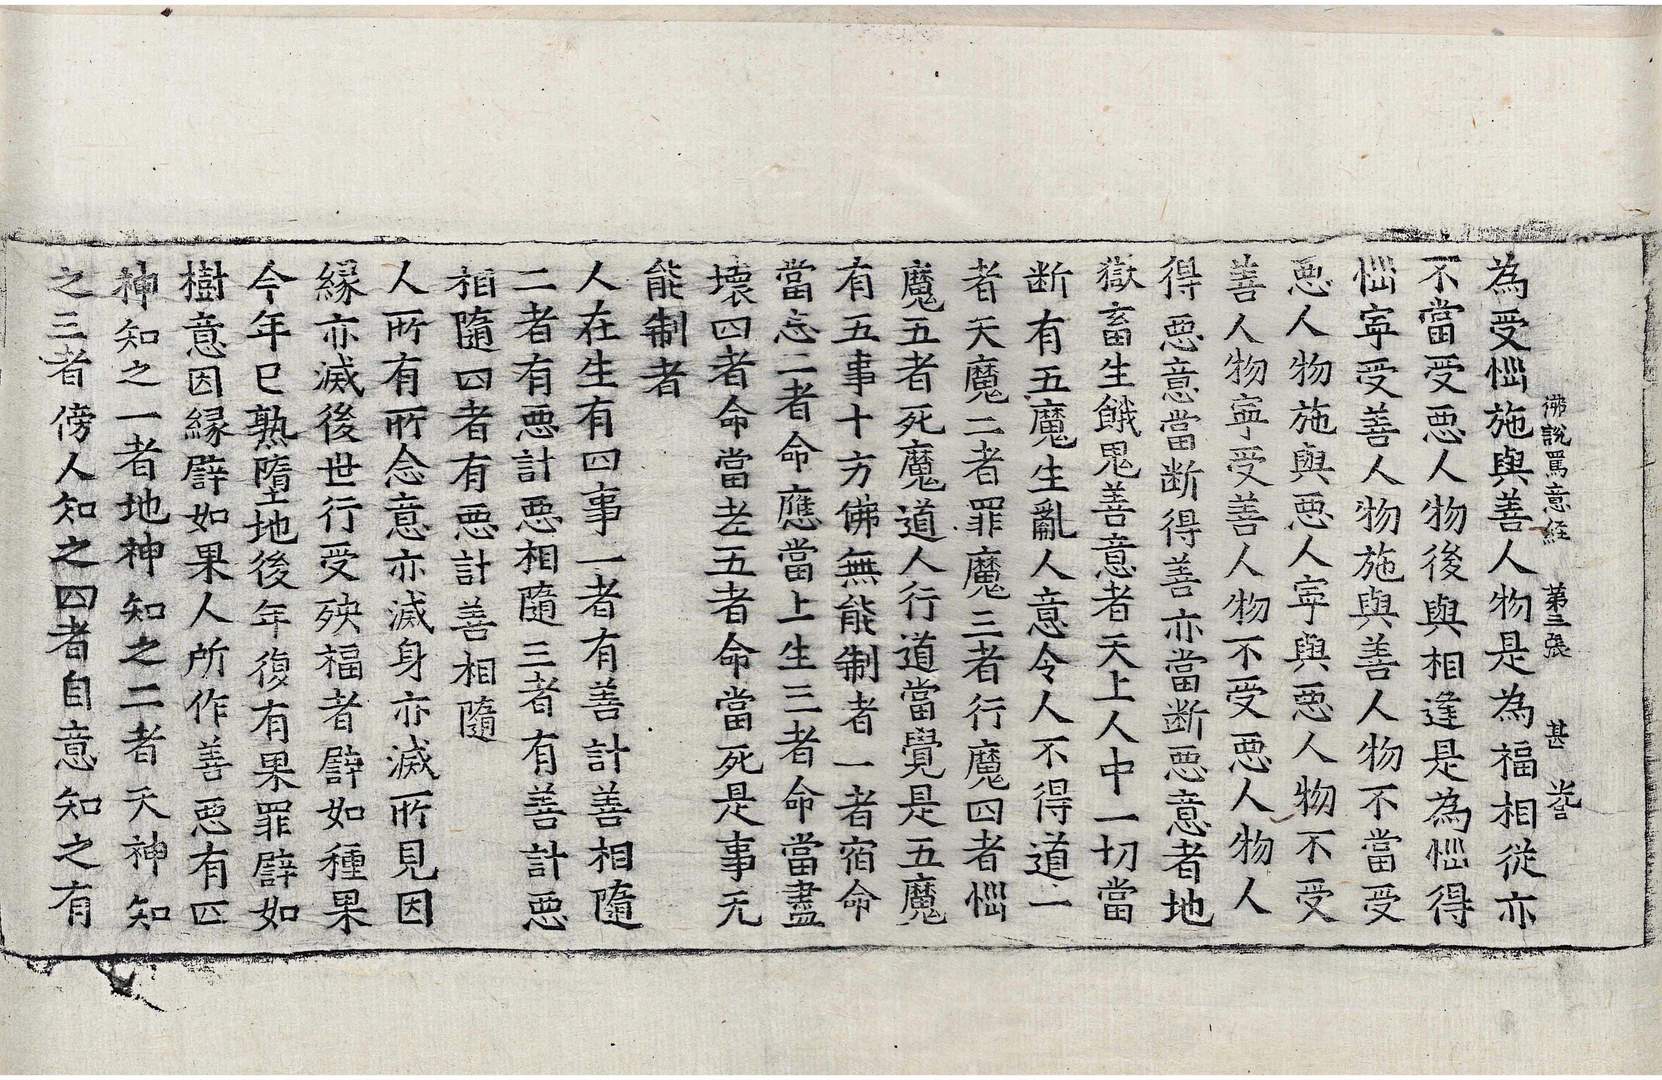 佛說罵意經 第三張 甚
為受惱施與善人物是為福相從亦
不當受惡人物後與相逢是為惱得
惱寧受善人物施與善人物不當受
惡人物施與惡人寧與惡人物不受
善人物寧受善人物不受惡人物人
得惡意當断得善亦當断惡意者地
獄畜生餓鬼善意者天上人中一切當
断有五魔生亂人意令人不得道一
者天魔二者罪魔三者行魔四者惱
魔五者死魔道人行道當覺是五魔
有五事十方佛無能制者一者宿命
當忘二者命應當上生三者命當盡
壞四者命當老五者命當死是事无
能制者
人在生有四事一者有善計善相隨
二者有惡計惡相隨三者有善計惡
相隨四者有惡計善相隨
人所有所念意亦滅身亦滅所見因
緣亦滅後世行受殃福者譬如種果
今年已熟墮地後年復有果罪譬如
樹意因緣譬如果人所作善惡有四
神知之一者地神知之二者天神知
之三者傍人知之四者自意知之有